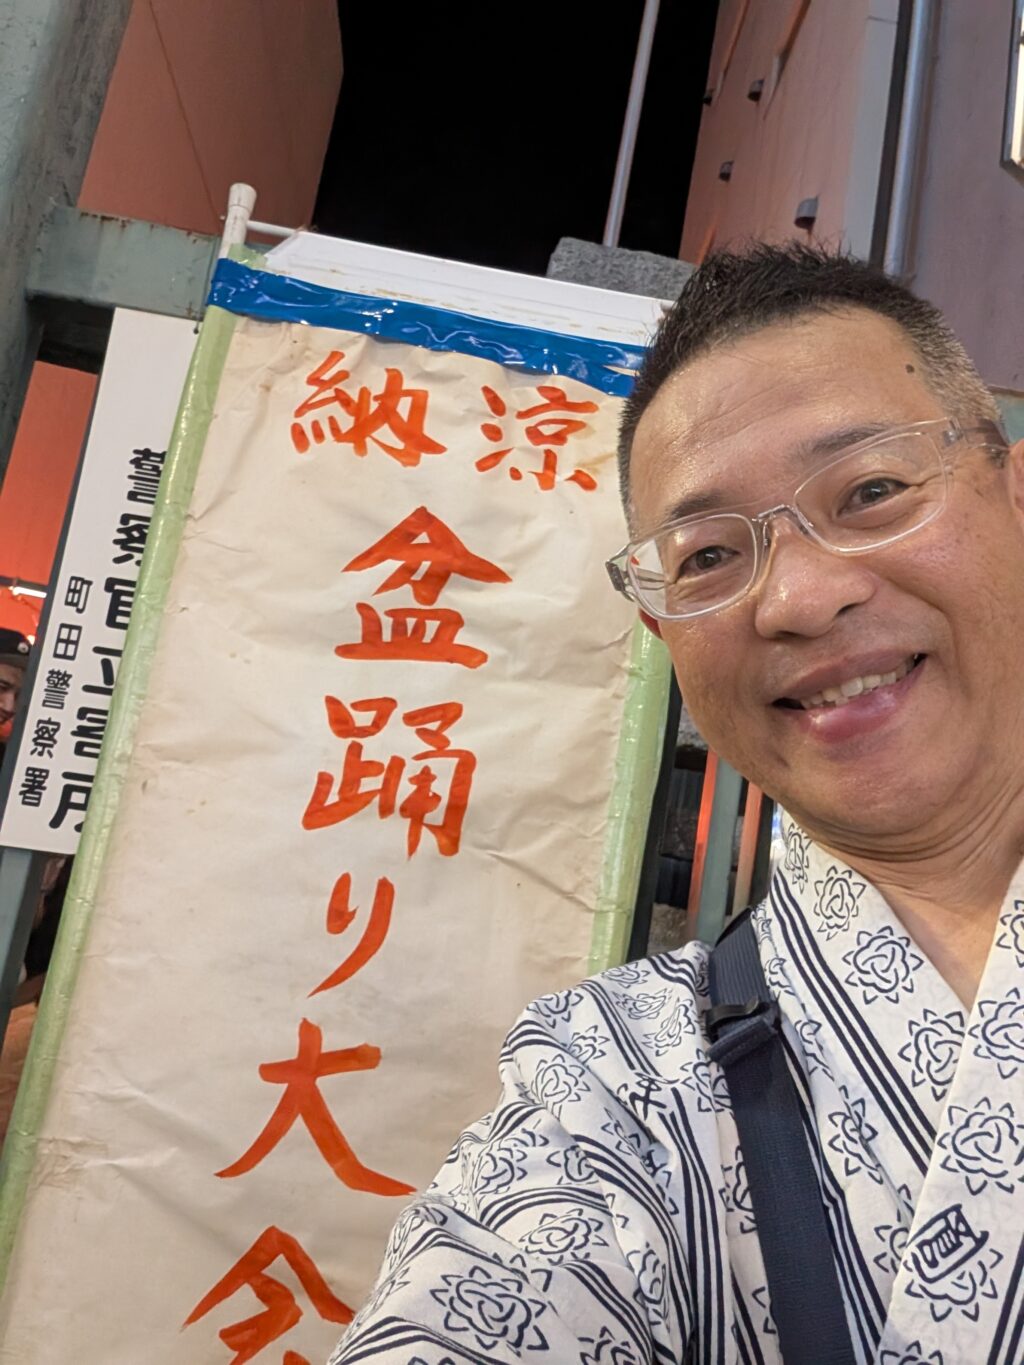 納涼
盆踊り大会
警察官立寄所
町田警察署